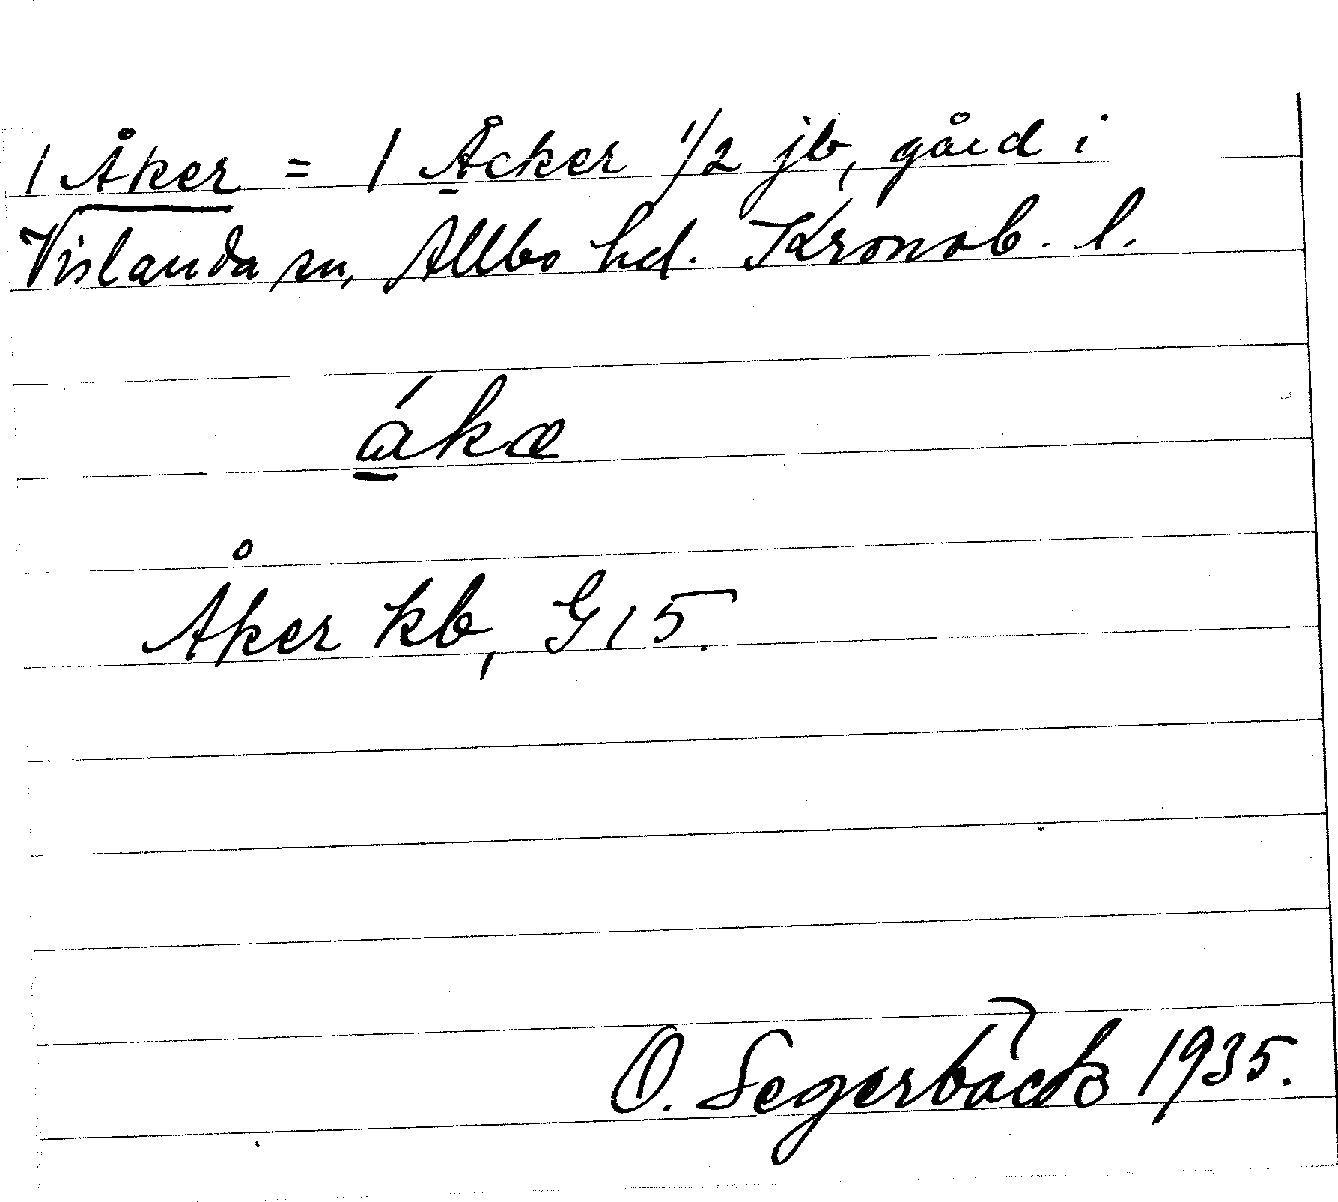 1 Åker = 1 Åcker 1/2 jb, gård i
Vislanda sn, Allbo hd. Kronob. l.
ákæ
Åker kb, G 15.
O. Segerbäck 1935.